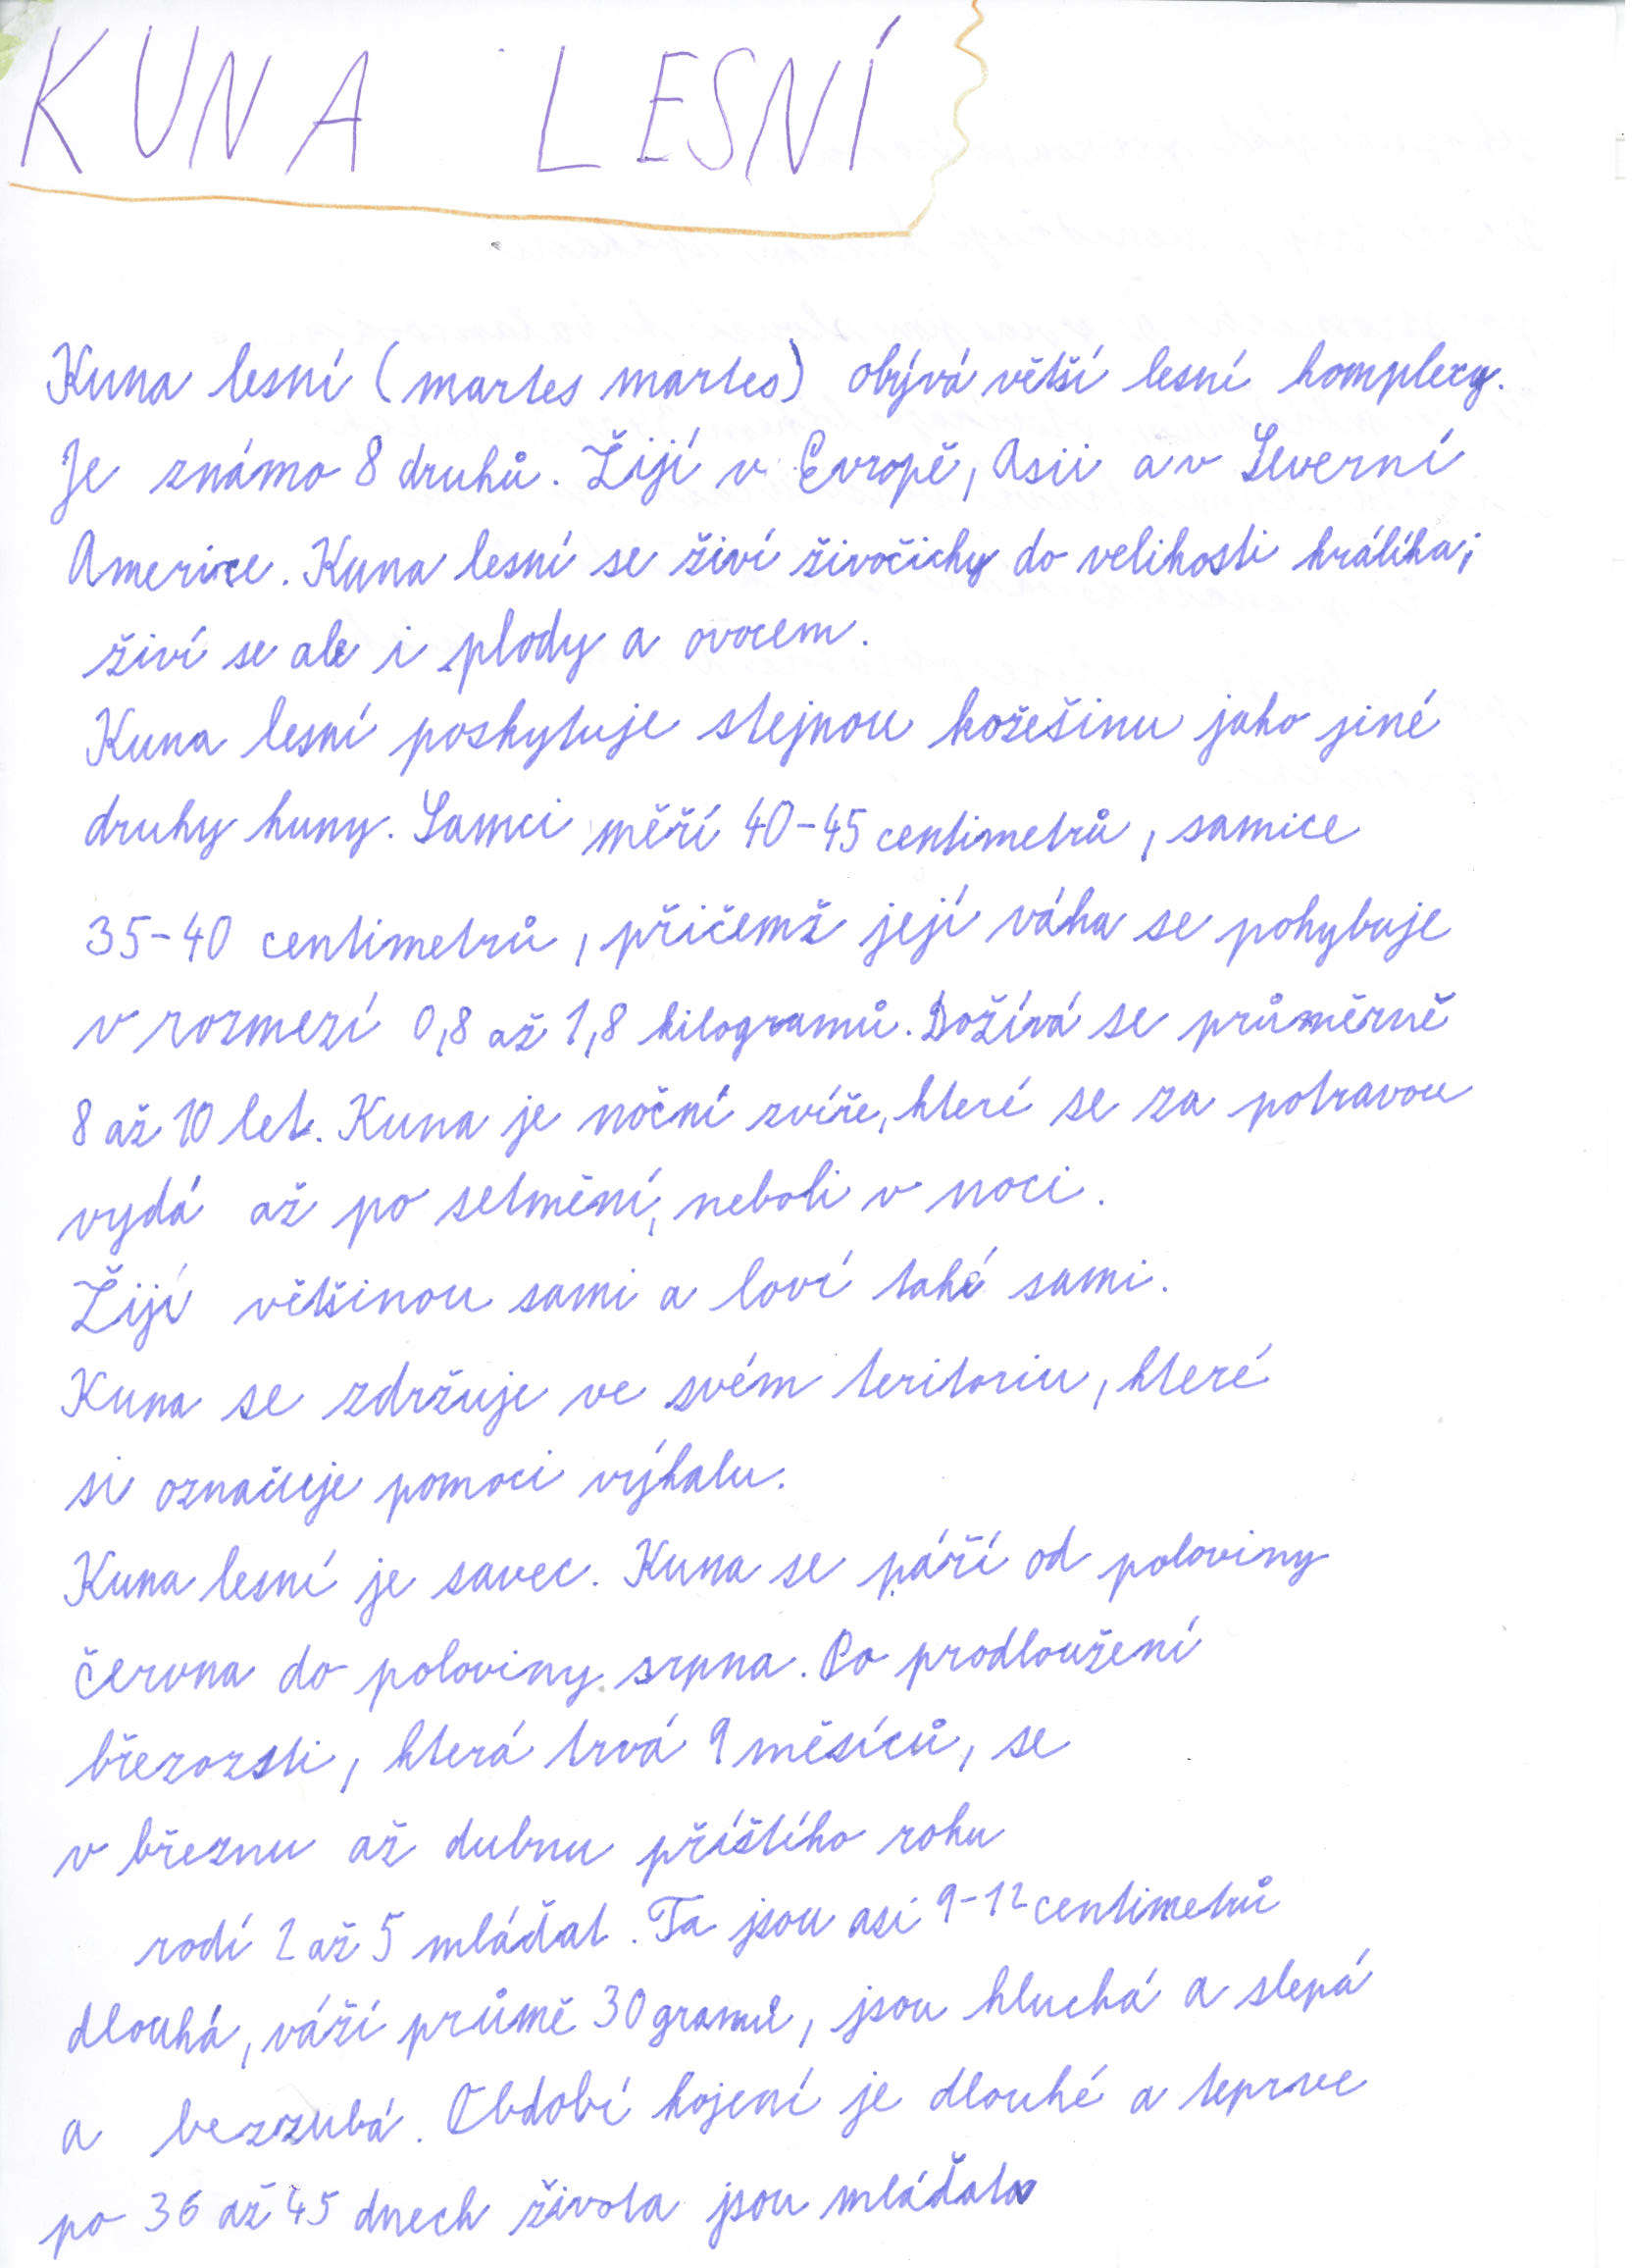 KUNA LESNÍ
Kuna lesní (martes martes) obývá větší lesní komplexy.
Je známo 8 druhů. Žijí v Evropě, Asii a v Severní
Americe. Kuna lesní se živí živočichy do velikosti králíka;
živí se ale i plody a ovocem.
Kuna lesní poskytuje stejnou kožešinu jako jiné
druhy kuny. Samci měří 40-45 centimetrů, samice
35-40 centimetrů, přičemž její váha se pohybuje
v rozmezí 0,8 až 1,8 kilogramů. Dožívá se průměrně
8 až 10 let. Kuna je noční zvíře, které se za potravou
vydá až po setmění, neboli v noci.
Žijí většinou sami a loví také sami.
Kuna se zdržuje ve svém teritoriu, které
si označuje pomoci výkalu.
Kuna lesní je savec. Kuna se páří od poloviny
června do poloviny srpna. Po prodloužení
březozsti, která trvá 9 měsíců, se
v březnu až dubnu příštího roku
rodí 2 až 5 mláďat. Ta jsou asi 9-12 centimetrů
dlouhá, váží průmě 30 gramů, jsou hluchá a slepá
a bezzubá. Období kojení je dlouhé a teprve
po 36 až 45 dnech života jsou mláďata